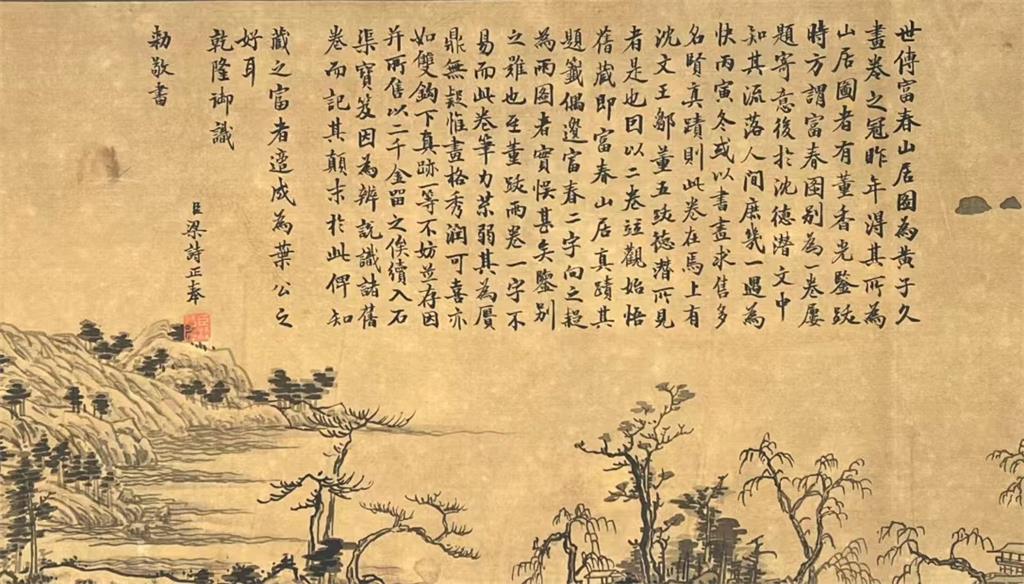 世傳富春山居圖為黃子久
畫卷之冠昨年淂其所為
山居圖者有董香光鑒跋
時方謂富春圖别為一卷屢
題寄意後於沈德潛文中
知其流落人間庶幾一遇為
快丙寅冬或以書畫求售多
名賢真蹟則此卷在焉上有
沈文王鄒董五跋德潛所見
者是也因以二卷竝觀始悟
舊藏即富春山居真蹟其
題籤偶遺富春二字向之疑
為兩圖者實悞甚矣鑒別
之難也至董跋兩卷一字不
易而此卷筆力苶弱其為贗
鼎無疑惟畫格秀润可喜亦
如雙鈎下真跡一等不妨並存因
并所售以二千金留之俟續入石
渠寶笈因為辨説識諸舊
卷而記其顛末於此俾知
藏之富者適成為葉公之
好耳
乾隆御識
臣梁詩正奉
勅敬書